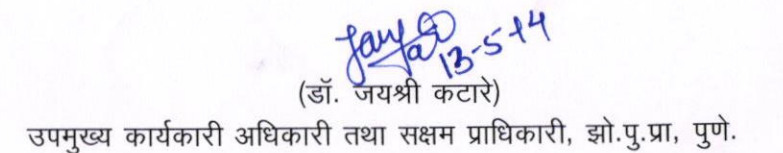 13-5-14
(डॉ. जयश्री कटारे)
उपमुख्य कार्यकारी अधिकारी तथा सक्षम प्राधिकारी, झो.पु.प्रा, पुणे.